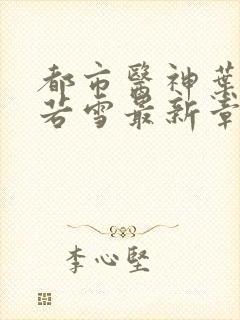 都市醫神葉
若雪最新章
李心堅